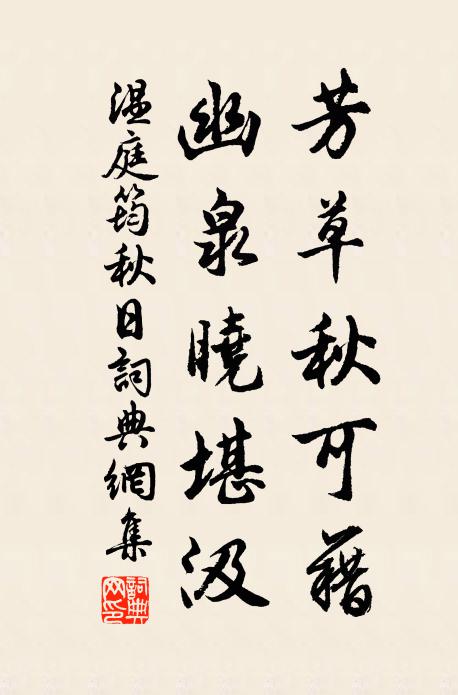 芳草秋可藉
幽泉曉堪汲
温庭筠秋日詞典網集
詞典网印